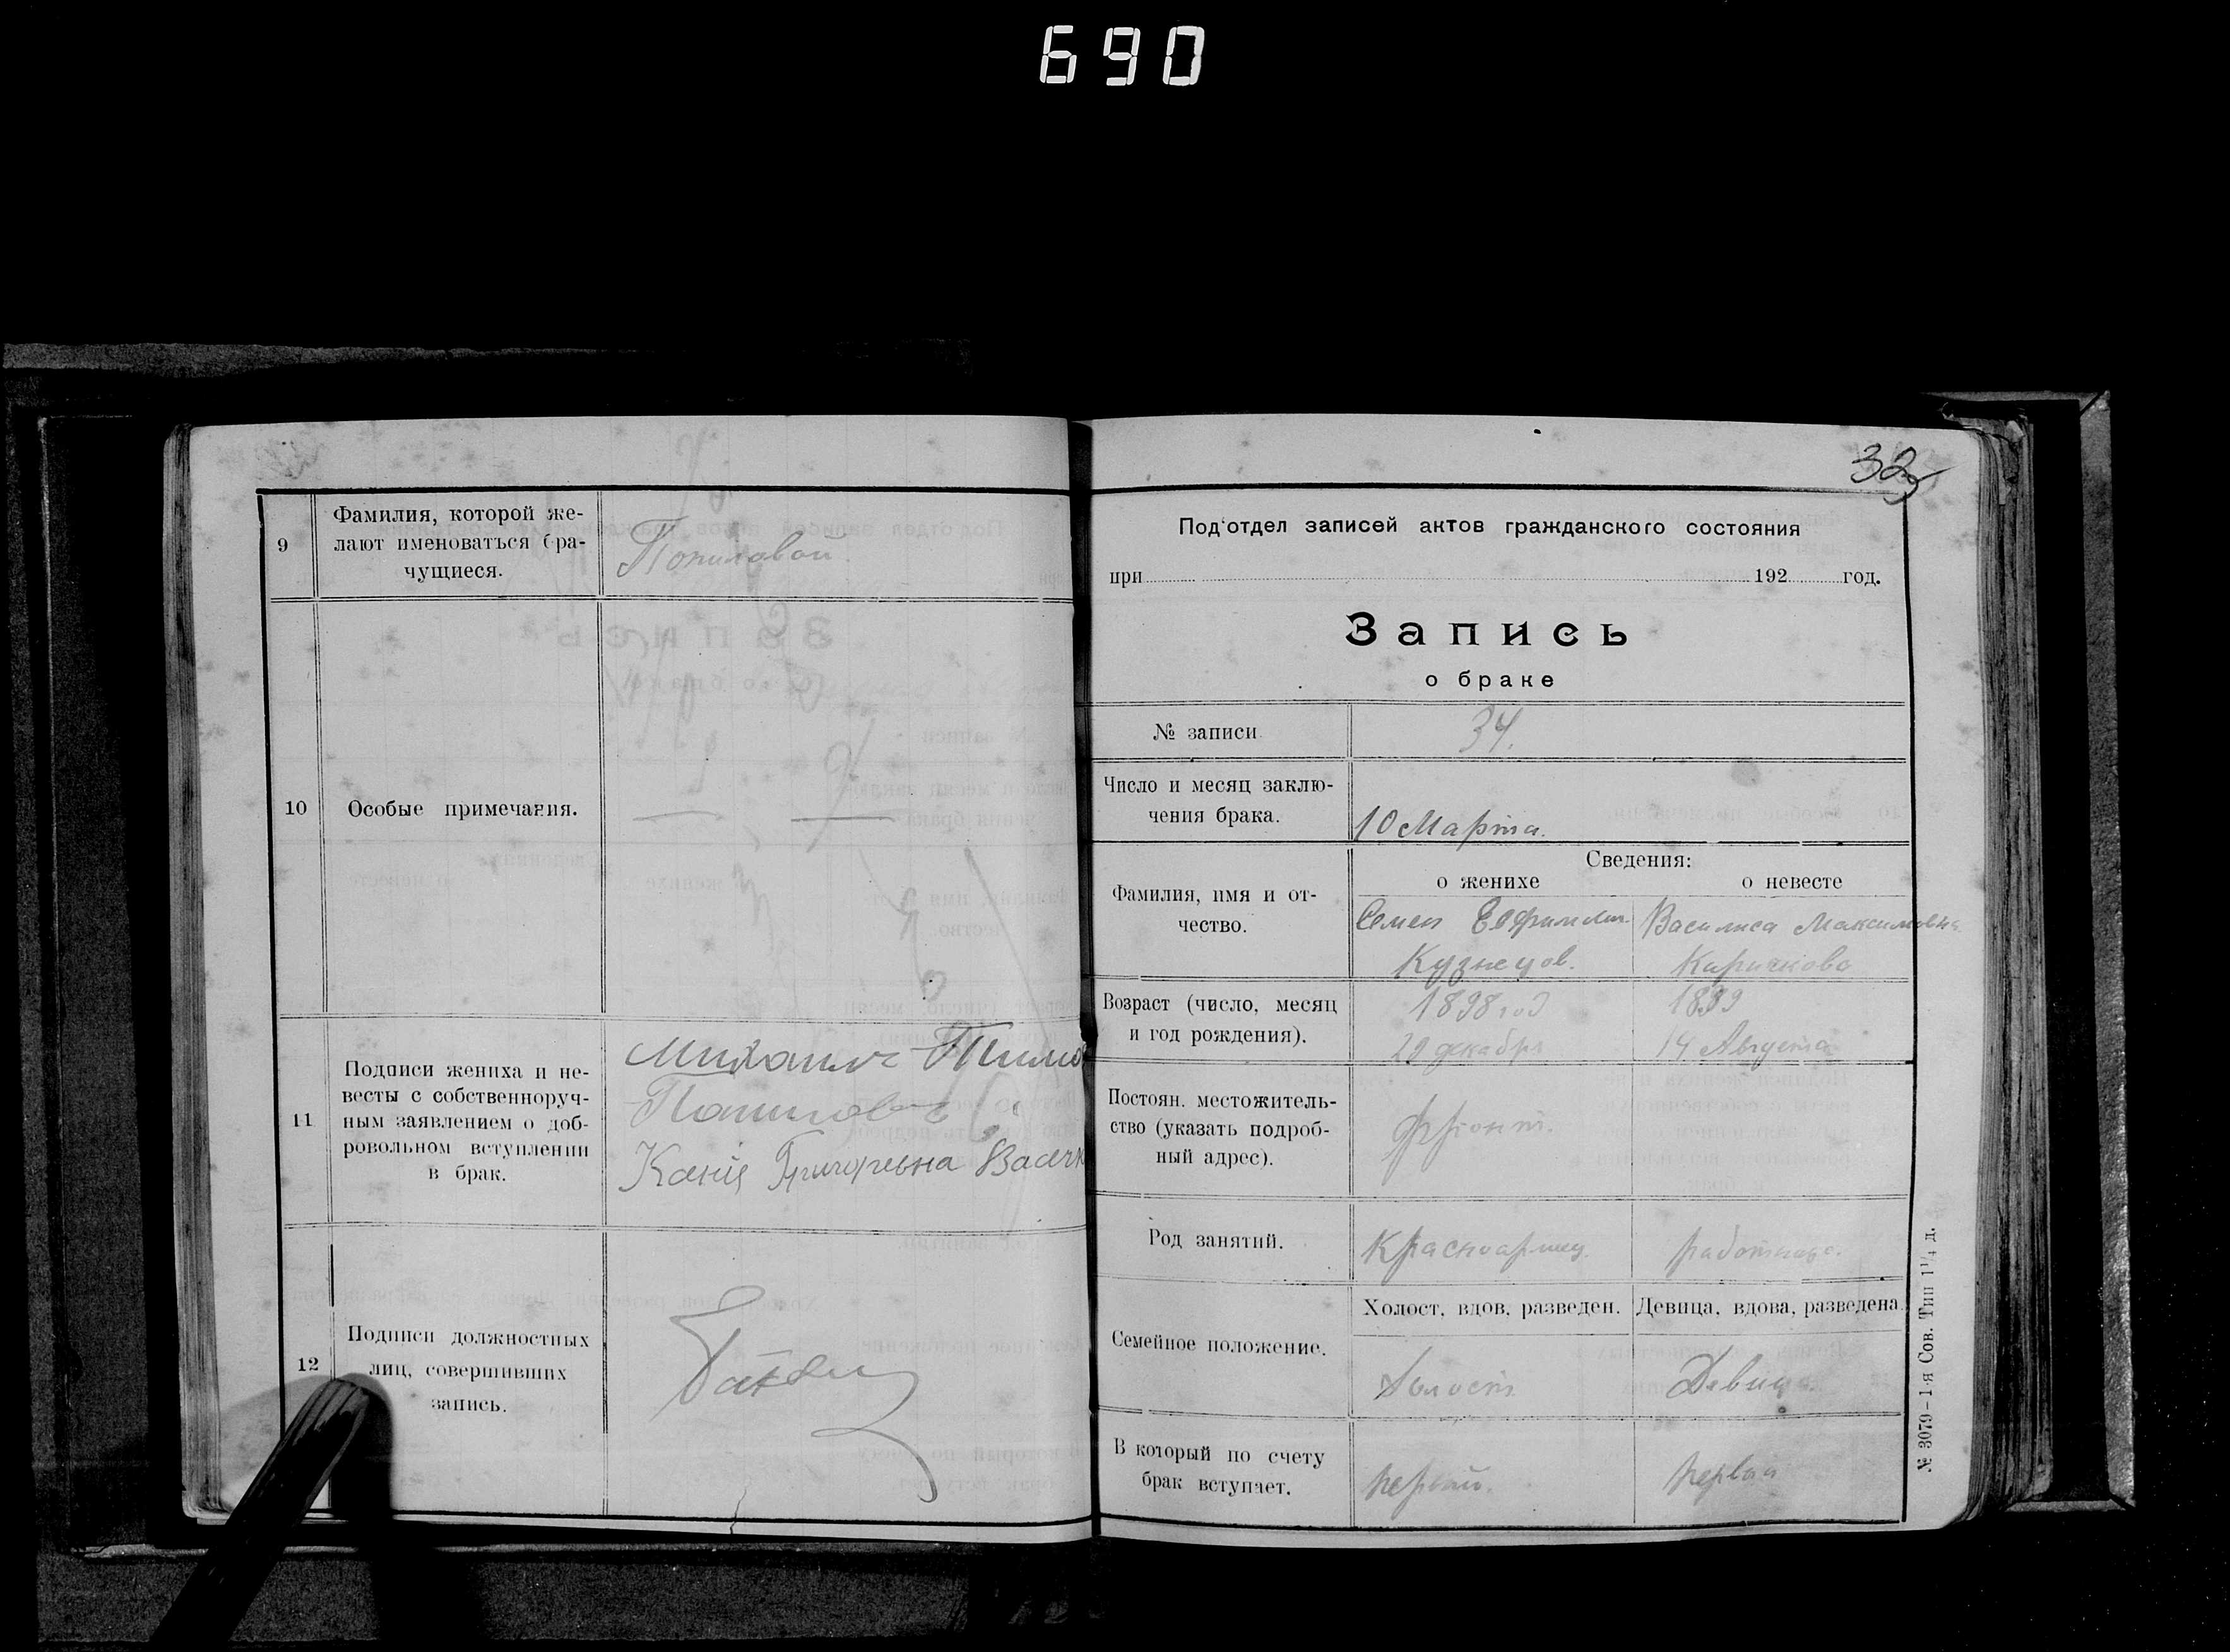 690
9
Фамилия, которой же-
лают именоваться бра-
чущиеся.
10
Особые примечания.
11
Подписи жениха и не-
весты с собственноруч-
ным заявлением о доб-
ровольном вступлении
в брак.
Григорьевна
12
Подписи должностных
лиц, совершивших
запись.
32
Под'отдел записей актов гражданского состояния
при 192 год.
Запись
о браке
№ записи
34.
Число и месяц заклю-
чения брака.
10 Марта.
Сведения:
о женихе
о невесте
Фамилия, имя и от-
чество.
Семен
Кузнецов.
Василиса Максимовна
Возраст (число, месяц
и год рождения).
1898 год
декабря
14 Августа
Постоян. местожитель-
ство (указать подроб-
ный адрес).
фронт.
Род занятий.
Красноармец.
работница.
Семейное положение.
Холост, вдов, разведен.
Девица, вдова, разведена.
Холост
Девица.
В который по счету
брак вступает.
первый.
первый
№ 3079–1-я Сов. Тип 1¼ д.